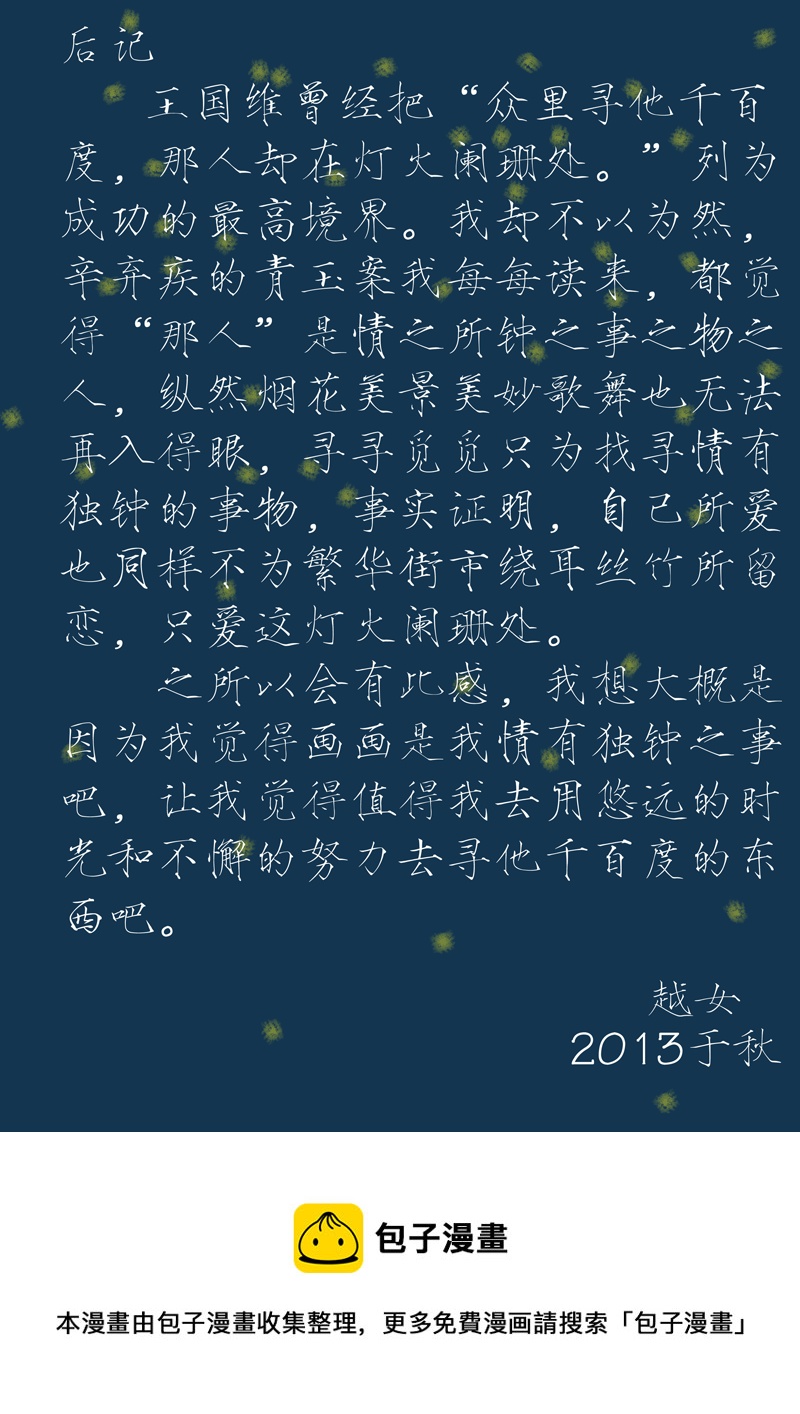 后记
王国维曾经把“众里寻他千百
度，那人却在灯火阑珊处。”列为
成功的最高境界。我却不以为然，
辛弃疾的青玉案我每每读来，都觉
得“那人”是情之所钟之事之物之
人，纵然烟花美景美妙歌舞也无法
再入得眼，寻寻觅觅只为找寻情有
独钟的事物，事实证明，自己所爱
也同样不为繁华街市绕耳丝竹所留
恋，只爱这灯火阑珊处。
之所以会有此感，我想大概是
因为我觉得画画是我情有独钟之事
吧，让我觉得值得我去用悠远的时
光和不懈的努力去寻他千百度的东
西吧。
越女
2013于秋
包子漫畫
本漫畫由包子漫畫收集整理，更多免費漫画請搜索「包子漫畫」